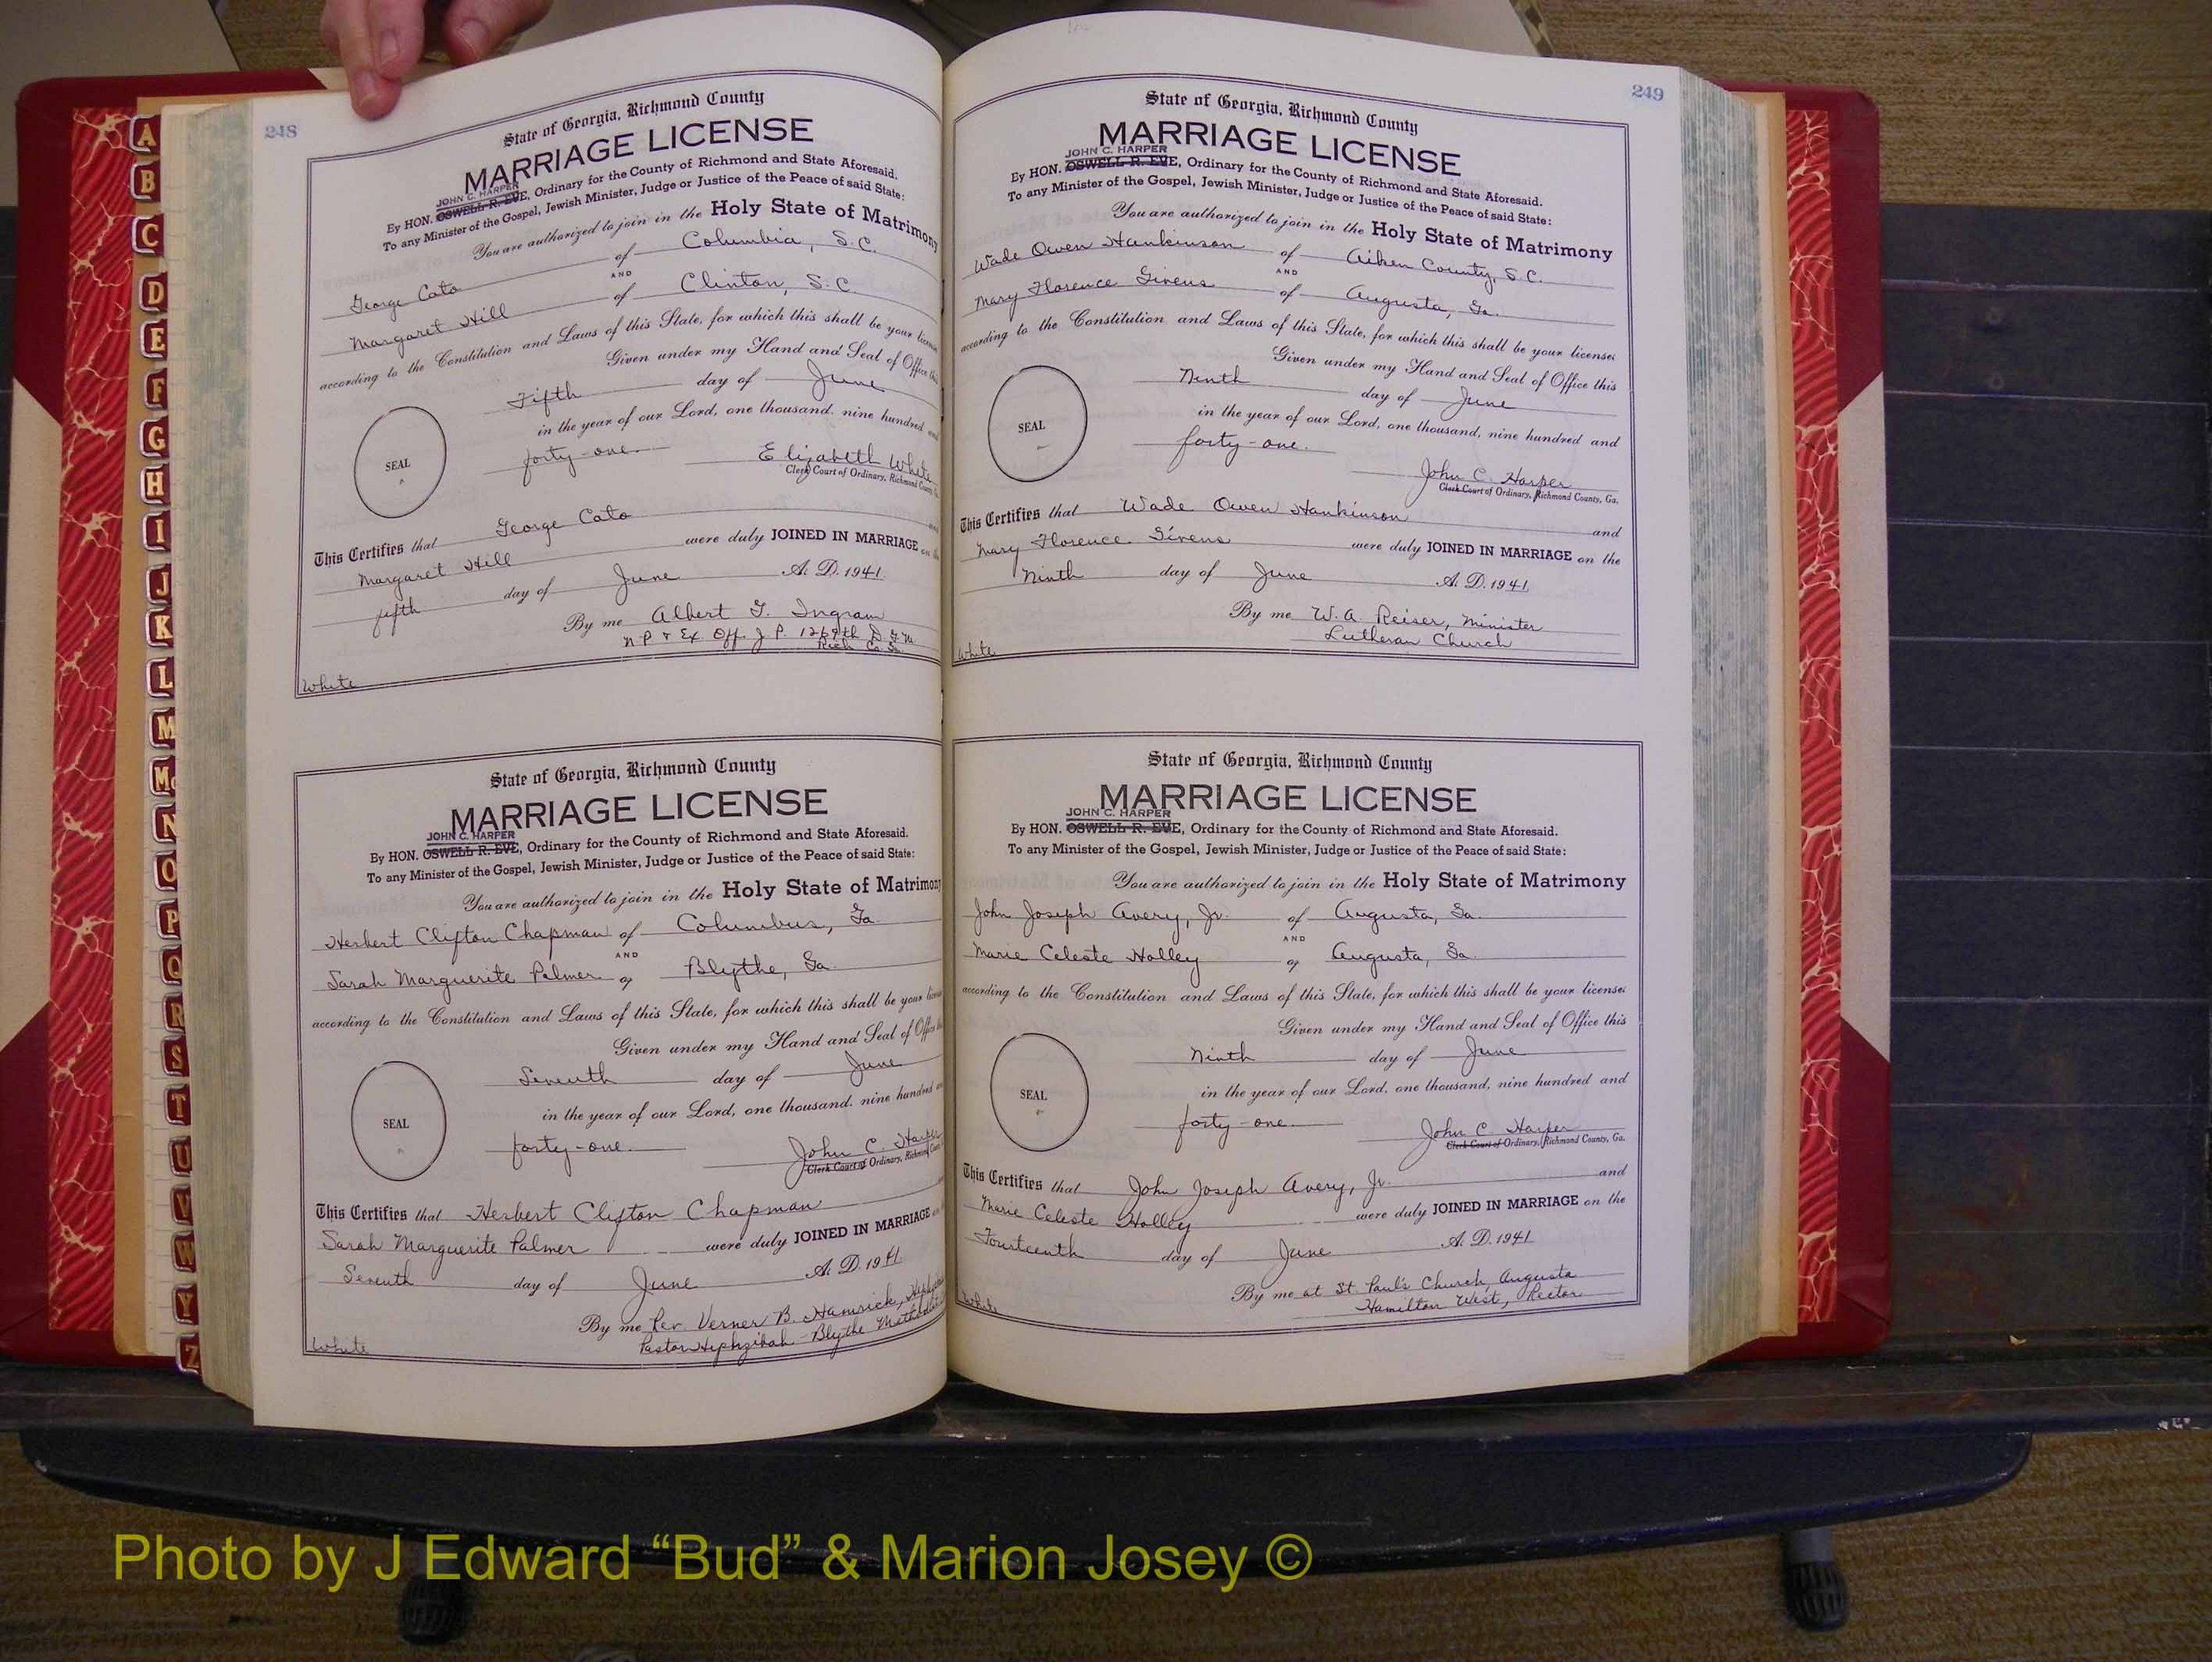 248
State of Georgia, Richmond County
MARRIAGE LICENSE
JOHN C. HARPER
By HON. OSWELL R. EVE, Ordinary for the County of Richmond and State Aforesaid.
To any Minister of the Gospel, Jewish Minister, Judge or Justice of the Peace of said State:
You are authorized to join in the Holy State of Matrimony
George Cato of Columbia, S.C.
AND
Margaret Hill of Clinton, S.C.
according to the Constitution and Laws of this State, for which this shall be your license
Given under my Hand and Seal of Office this
Fifth day of June
in the year of our Lord, one thousand, nine hundred
SEAL
forty-one. Elizabeth White
Clerk Court of Ordinary, Richmond County
This Certifies that George Cato
Margaret Hill were duly JOINED IN MARRIAGE on
fifth day of June A. D. 1941
By me Albert G. Ingram
N P & Ex Off. J P. 1269th D G.M.
Rich Co Ga
White
State of Georgia, Richmond County
MARRIAGE LICENSE
JOHN C. HARPER
By HON. OSWELL R. EVE, Ordinary for the County of Richmond and State Aforesaid.
To any Minister of the Gospel, Jewish Minister, Judge or Justice of the Peace of said State:
You are authorized to join in the Holy State of Matrimony
Herbert Clifton Chapman of Columbus, Ga.
AND
Sarah Marguerite Palmer of Blythe, Ga.
according to the Constitution and Laws of this State, for which this shall be your license
Given under my Hand and Seal of Office
Seventh day of June
in the year of our Lord, one thousand, nine hundred
SEAL
forty-one. John C. Harper
Clerk Court of Ordinary, Richmond County
This Certifies that Herbert Clifton Chapman
Sarah Marguerite Palmer were duly JOINED IN MARRIAGE
Seventh day of June A. D. 1941
By me Rev. Verner B. Hamrick,
Pastor Hephzibah-Blythe Methodist
White
249
State of Georgia, Richmond County
MARRIAGE LICENSE
JOHN C. HARPER
By HON. OSWELL R. EVE, Ordinary for the County of Richmond and State Aforesaid.
To any Minister of the Gospel, Jewish Minister, Judge or Justice of the Peace of said State:
You are authorized to join in the Holy State of Matrimony
Wade Owen Hankinson of Aiken County, S.C.
AND
Mary Florence Givens of Augusta, Ga.
according to the Constitution and Laws of this State, for which this shall be your license:
Given under my Hand and Seal of Office this
Ninth day of June
in the year of our Lord, one thousand, nine hundred and
SEAL
forty-one. John C. Harper
Clerk Court of Ordinary, Richmond County, Ga.
This Certifies that Wade Owen Hankinson and
Mary Florence Givens were duly JOINED IN MARRIAGE on the
Ninth day of June A. D. 1941
By me W. A. Reiser, Minister
Lutheran Church
White
State of Georgia, Richmond County
MARRIAGE LICENSE
JOHN C. HARPER
By HON. OSWELL R. EVE, Ordinary for the County of Richmond and State Aforesaid.
To any Minister of the Gospel, Jewish Minister, Judge or Justice of the Peace of said State:
You are authorized to join in the Holy State of Matrimony
John Joseph Avery, Jr. of Augusta, Ga.
AND
Marie Celeste Holley of Augusta, Ga.
according to the Constitution and Laws of this State, for which this shall be your license:
Given under my Hand and Seal of Office this
Ninth day of June
in the year of our Lord, one thousand, nine hundred and
SEAL
forty-one. John C. Harper
Clerk Court of Ordinary, Richmond County, Ga.
This Certifies that John Joseph Avery, Jr. and
Marie Celeste Holley were duly JOINED IN MARRIAGE on the
Fourteenth day of June A. D. 1941
By me at St. Paul's Church, Augusta
Hamilton West, Rector
White
A
B
C
D
E
F
G
H
I
J
K
L
M
Mc
N
O
P
Q
R
S
T
U
V
W
Y
Z
Photo by J Edward “Bud” & Marion Josey ©